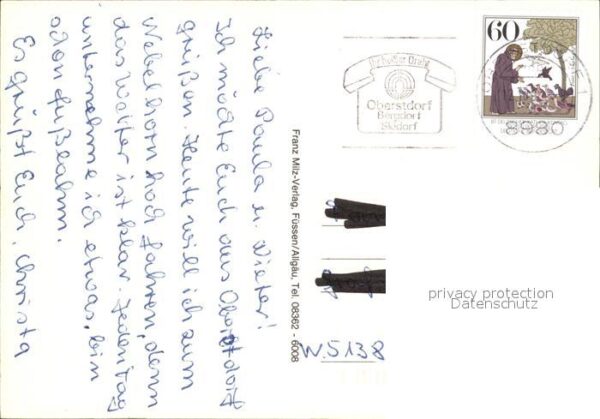 Liebe Paula u. Dieter!
Ich möchte Euch aus Oberstdorf
grüßen. Heute will ich zum
Nebelhorn hoch fahren, denn
das Wetter ist klar. Jeden Tag
unternehme ich etwas, bin
schon fußlahm.
Es grüßt Euch, Christa
Franz Milz-Verlag, Füssen/Allgäu, Tel. 08362 - 6008
Oberstdorf
Bergdorf
Skidorf
60
8980
W. 5138
privacy protection
Datenschutz